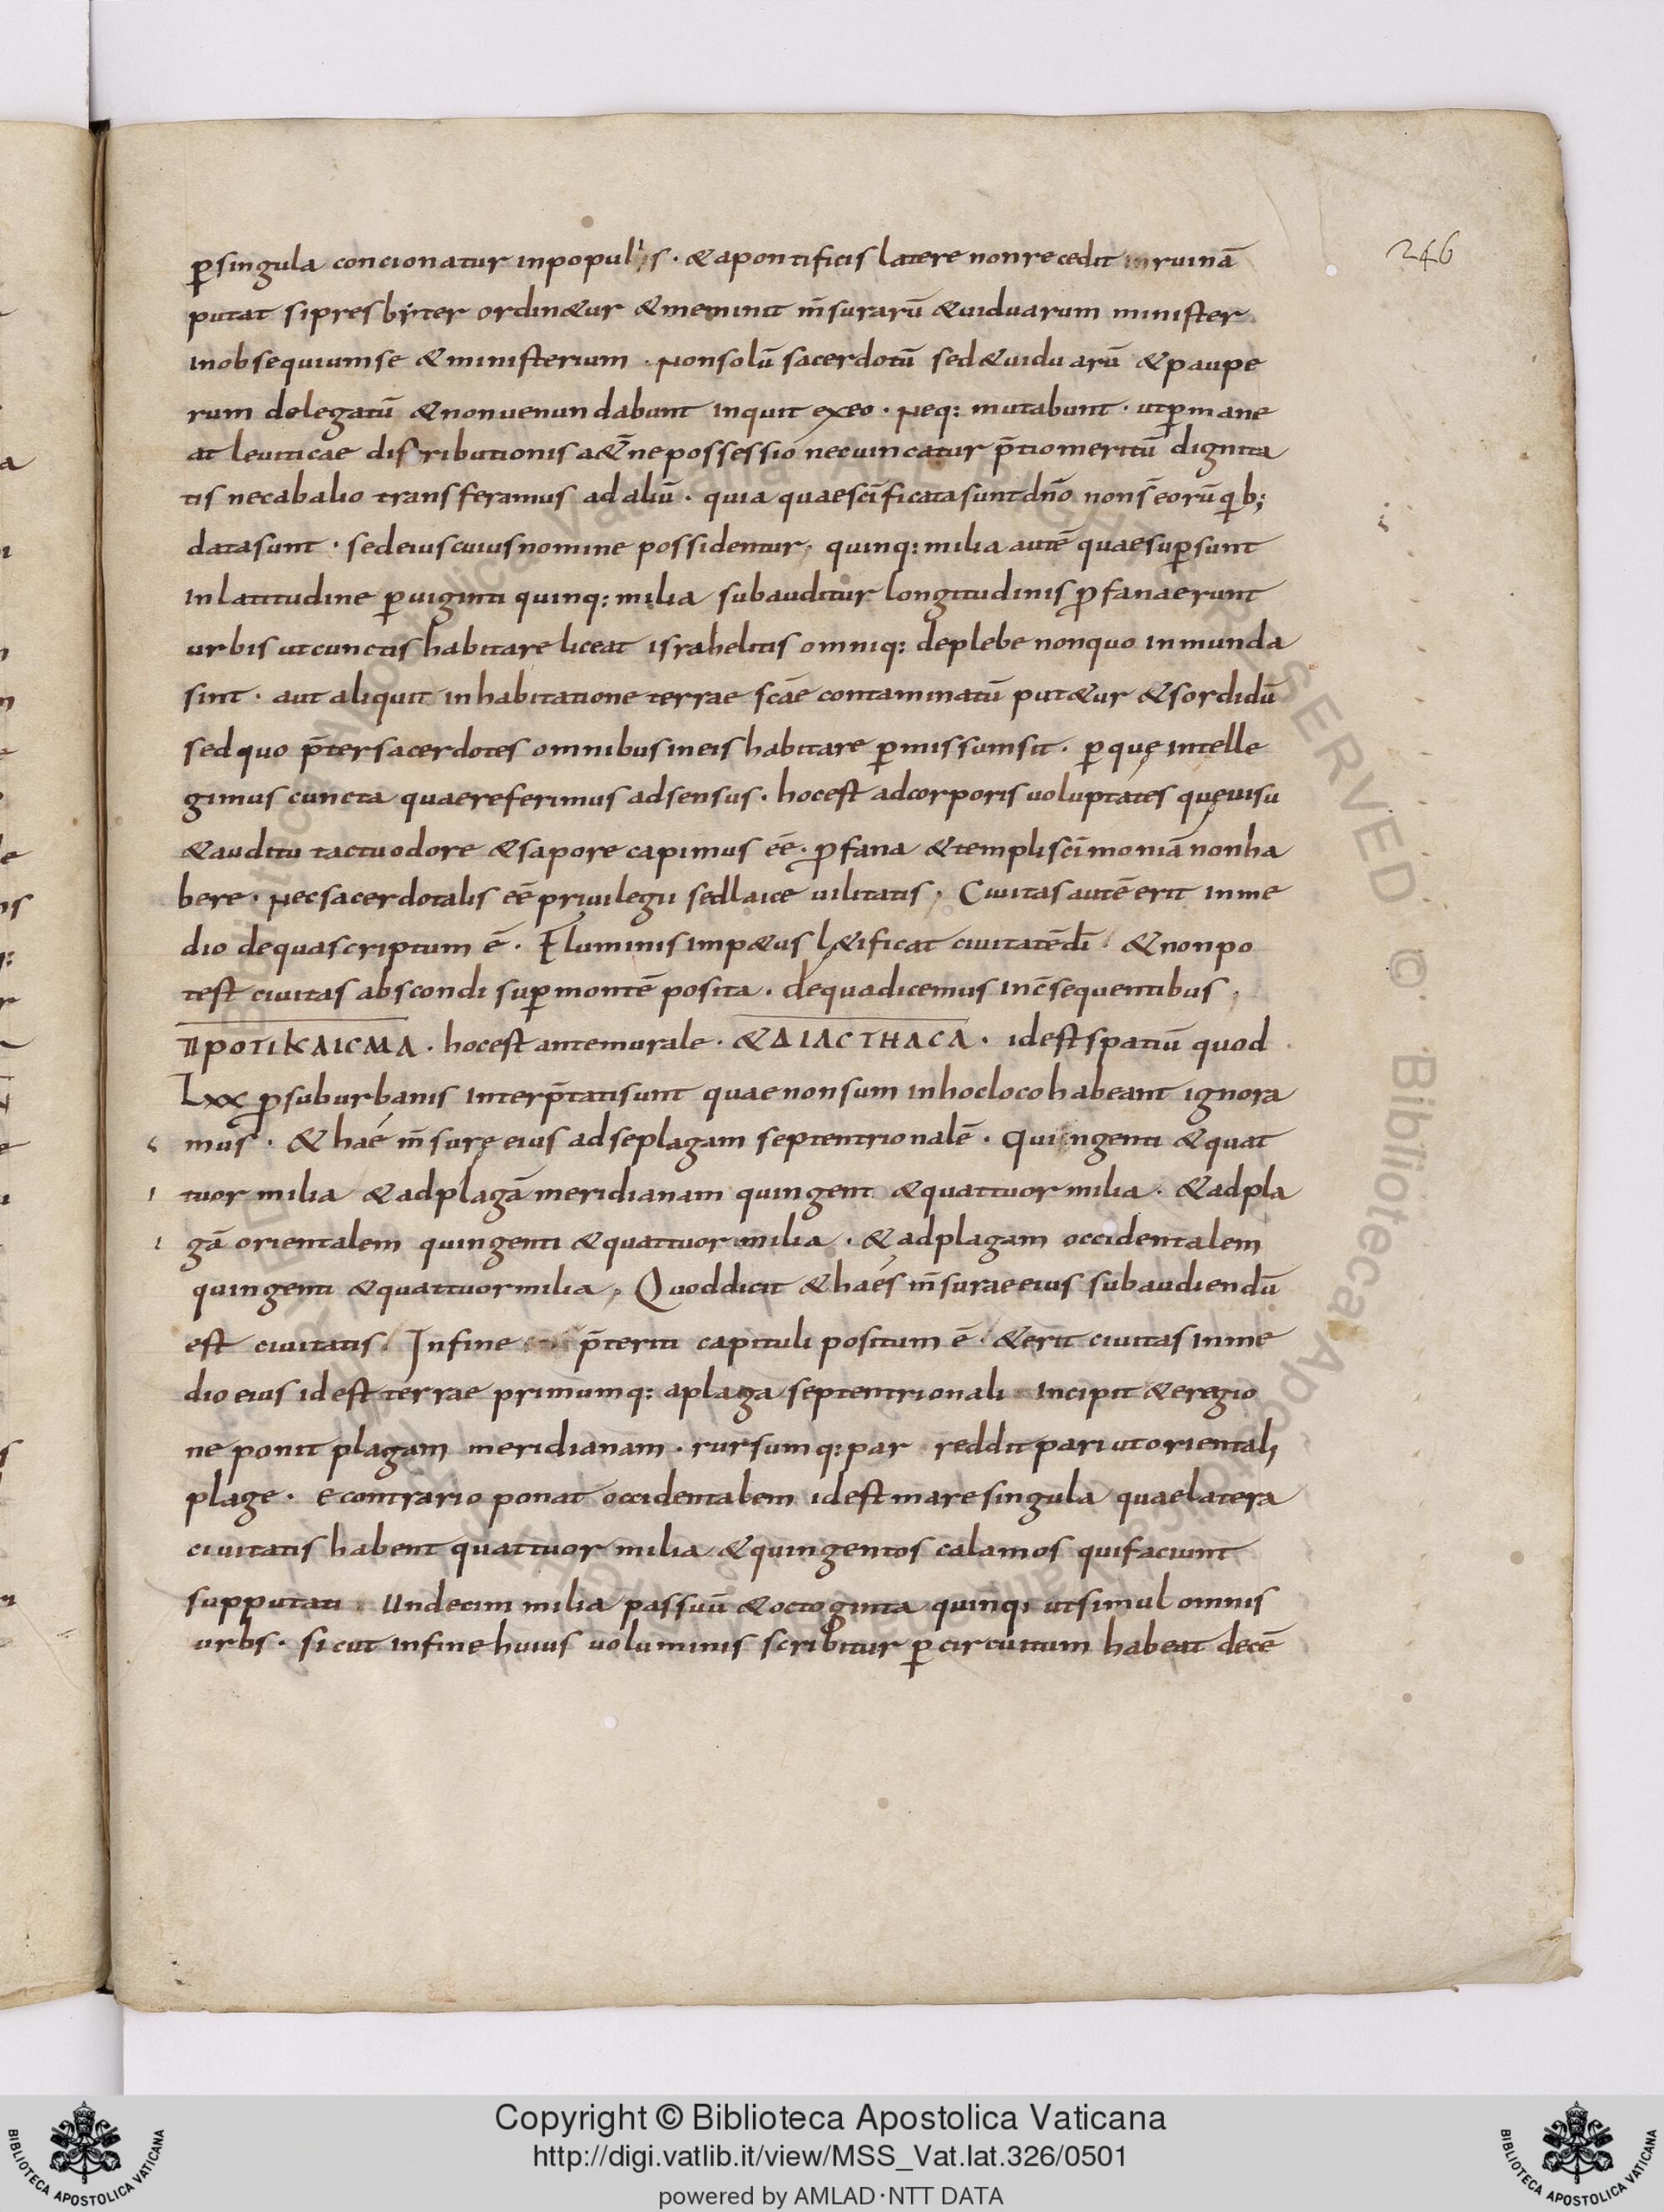 246
p̱singula concionatur inpopulis · & apontificis latere nonrecedit inruinā
putat sipresbyter ordin&ur & meminit m̄surarū & uiduarum minister
inobsequiumse & ministerium · Nonsolū sacerdotū sed & uiduarū & paupe
rum delegatū & nonuenundabunt inquit exeo · Neq: mutabunt · utp̱mane
at leuiticae distributionis a&̄ne possessio necuincatur p̄tiomeritū dignita
tis necabalio transferamus adaliū · quia quaesc̄ificatasunt dn̄o nons̄ eorū qib;
datasunt · sedeiuscuiusnomine possidentur, quinq: milia autē quaesup̱sunt
inlatitudine p̱uiginti quinq: milia subauditur longitudinis ꝓfanaerunt
urbis utcunctis habitare liceat israhelitis omniq: deplebe nonquo inmunda
sint · aut aliquit inhabitatione terrae scāe contaminatū put&ur & sordidū
sedquo p̄tersacerdotes omnibusineis habitare p̱missumsit · p̱quę intelle
gimus cuncta quaereferimus adsensus · hocest adcorporis uoluptates quęuisu
& auditu tactuodore & sapore capimus eē · ꝓfana & templisc̄imoniā nonha
bere · Necsacerdotalis eē priuilegii sedlaice uilitatis, Ciuitas autē erit inme
dio dequascriptum ē · Fluminis imp&us l&ificat ciuitatē dī · & nonpo
test ciuitas abscondi sup̱montē posita · dequadicemus inc̄sequentibus ,
ΠΡΟΤΙΚΑΙCΜΑ · hocest antemurale · & ΔΙΑCΤΗΑCΑ · idest spatiū quod
Lxx ꝓsuburbanis interp̄tatisunt quaenonsum inhocloco habeant ignora
mus · & haé m̄surę eius adseplagam septentrionalē · quingenti & quat
tuor milia & adplagā meridianam quingent & quattuor milia · & adpla
gā orientalem quingenti & quattuor milia · & adplagam occidentalem
quingenti & quattuormilia, Quoddicit & haes m̄suraeeius subaudiendū
est ciuitatis. Infine p̄teriti capituli positum ē · & erit ciuitas inme
dio eius idest terrae primumq: aplaga septentrionali incipit & eregio
ne ponit plagam meridianam · rursumq: par reddit pari utorientali
plage · econtrario ponat occidentalem idest maresingula quaelatera
ciuitatis habent quattuor milia & quingentos calamos quifaciunt
supputati · Undecim milia passuū & octoginta quinq; utsimul omnis
urbs · sicut infinehuius uoluminis scribitur p̱circuitum habeat decē
Copyright © Biblioteca Apostolica Vaticana
http://digi.vatlib.it/view/MSS_Vat.lat.326/0501
powered by AMLAD·NTT DATA
BIBLIOTECA APOSTOLICA VATICANA
BIBLIOTECA APOSTOLICA VATICANA